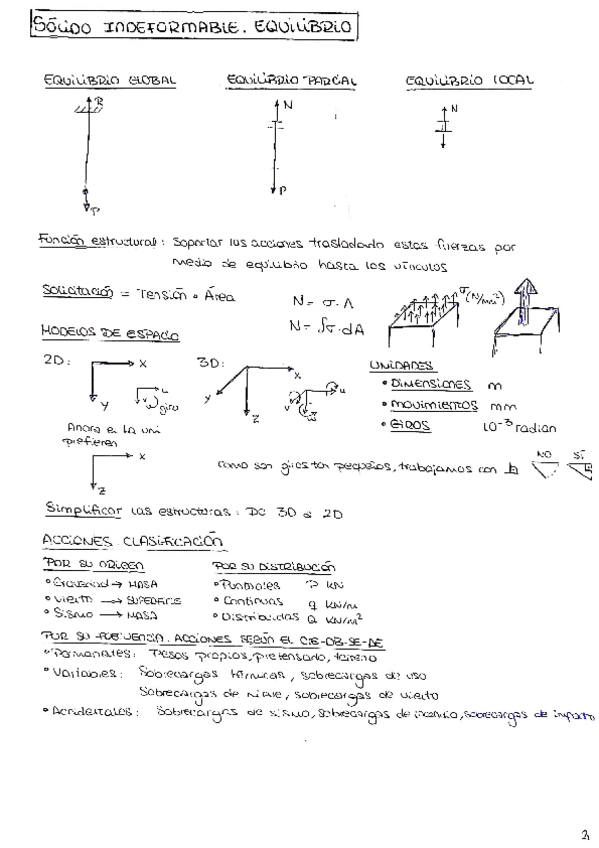 SÓLIDO INDEFORMABLE. EQUILIBRIO
EQUILIBRIO GLOBAL
EQUILIBRIO PARCIAL
EQUILIBRIO LOCAL
R
P
N
P
N
Función estructural: Soportar las acciones trasladando estas fuerzas por
medio de equilibrio hasta los vínculos
Solicitación = Tensión · Área
N = σ · A
N = ∫σ · dA
σ (N/mm²)
MODELOS DE ESPACIO
2D:
x
y
u
v
giro
3D:
x
y
z
u
v
w
UNIDADES
• DIMENSIONES m
• MOVIMIENTOS mm
• GIROS 10⁻³ radian
Ahora e la uni
prefieren
x
z
Como son giros tan pequeños, trabajamos con
NO
SÍ
Simplificar las estructuras: De 3D a 2D
ACCIONES. CLASIFICACIÓN
POR SU ORIGEN
• Gravedad → MASA
• Viento → SUPERFICIE
• Sismo → MASA
POR SU DISTRIBUCIÓN
• Puntuales P kN
• Continuas q kN/m
• Distribuidas Q kN/m²
POR SU FRECUENCIA. ACCIONES SEGÚN EL CTE-DB-SE-AE
• Permanentes: Pesos propios, pretensado, terreno
• Variables: Sobrecargas térmicas, sobrecargas de uso
Sobrecargas de nieve, sobrecargas de viento
• Accidentales: Sobrecargas de sismo, sobrecargas de incendio, sobrecargas de impacto